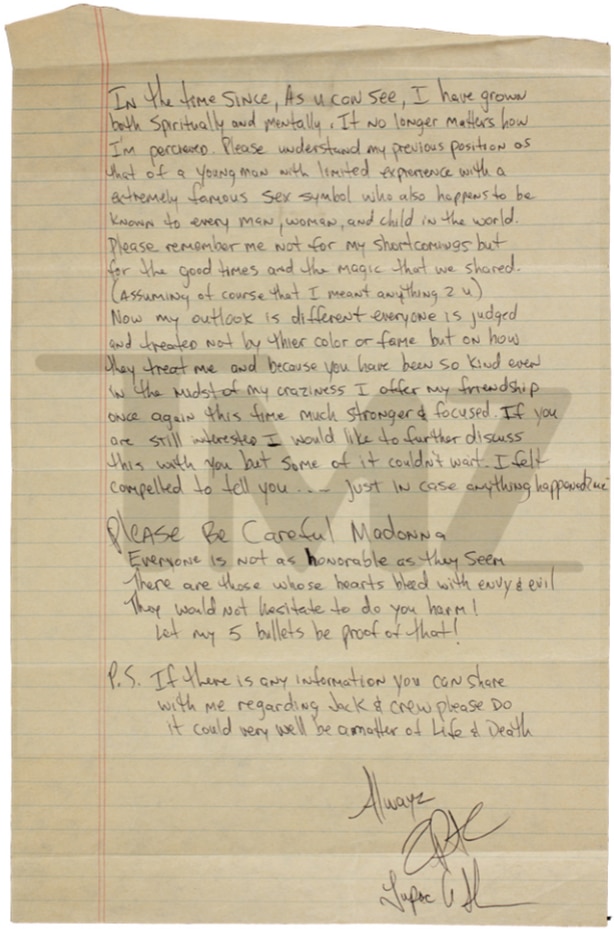 In the time since, As u can see, I have grown
both spiritually and mentally. It no longer matters how
I'm percieved. Please understand my previous position as
that of a young man with limited experience with a
extremely famous sex symbol who also happens to be
known to every man, woman, and child in the world.
Please remember me not for my shortcomings but
for the good times and the magic that we shared.
(Assuming of course that I meant anything 2 u)
Now my outlook is different everyone is judged
and treated not by thier color or fame but on how
they treat me and because you have been so kind even
in the midst of my craziness I offer my friendship
once again this time much stronger & focused. If you
are still interested I would like to further discuss
this with you but some of it couldn't wait. I felt
compelled to tell you .... Just in case anything happened 2 me
Please Be Careful Madonna
Everyone is not as honorable as they seem
There are those whose hearts bleed with envy & evil
They would not hesitate to do you harm!
Let my 5 bullets be proof of that!
P.S. If there is any information you can share
with me regarding Jack & crew please Do
it could very well be a matter of Life & Death
Alwayz
Tupac
TMZ